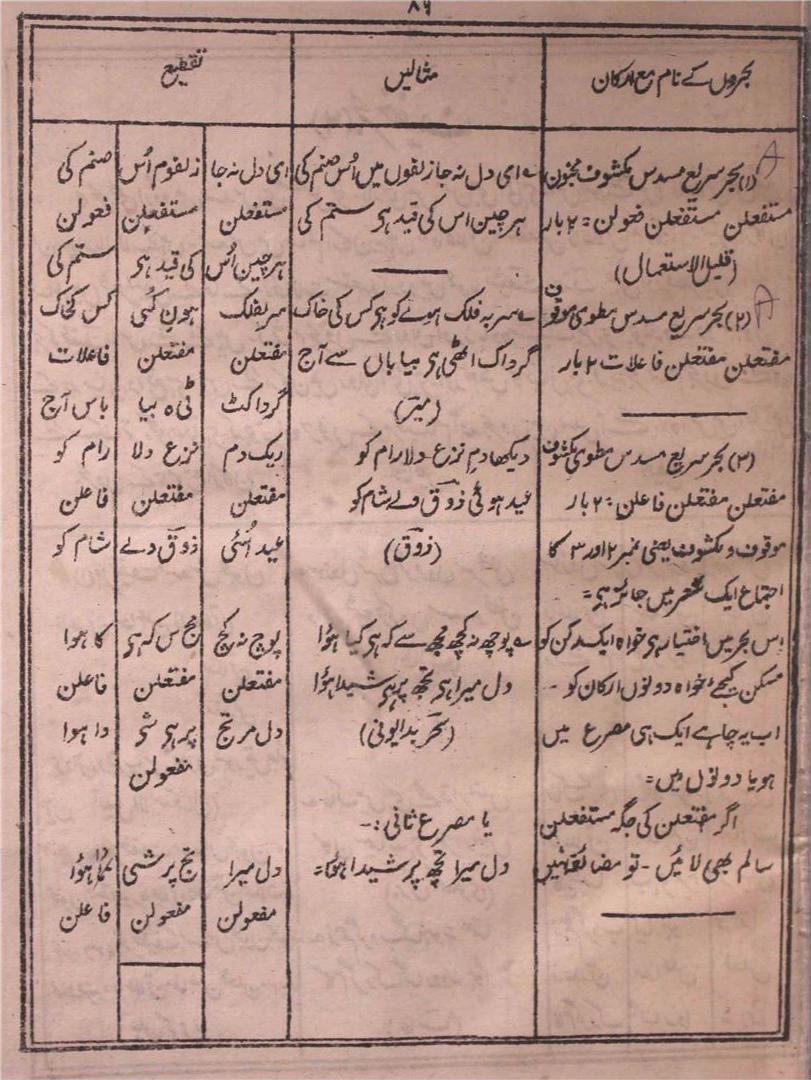 ۸۶
بحروں کے نام مع ارکان
مثالیں
تقطیع
(۱) بحر سریع مسدس مکشوف مخبون
مستفعلن مستفعلن فعولن = ۲ بار
(قلیل الاستعمال)
(۲) بحر سریع مسدس مطوی موقوف
مفتعلن مفتعلن فاعلات ۲ بار
(۳) بحر سریع مسدس مطوی مکشوف
مفتعلن مفتعلن فاعلن = ۲ بار
موقوف و مکشوف یعنی نمبر ۲ اور ۳ کا
اجتماع ایک شعر میں جائز ہے =
اس بحر میں اختیار ہی خواہ ایک رکن کو
مسکن کیجئے خواہ دونوں ارکان کو -
اب یہ چاہے ایک ہی مصرع میں
ہو یا دونوں میں =
اگر مفتعلن کی جگہ مستفعلن
سالم بھی لائیں - تو مضائقہ نہیں
ای دل نہ جا زلفوں میں اُس صنم کی
ہر چین اس کی قید ہی ستم کی
سر بہ فلک ہونے کو ہی کس کی خاک
گرد اک اٹھی ہی بیاباں سے آج
(میر)
دیکھا دمِ نزع دلا رام کو
عید ہوئی ذوق ولے شام کو
(ذوق)
پوچھ نہ کچھ مجھ سے کہ ہی کیا ہوا
دل میرا ہی تجھ پر ہی شیدا ہوا
(بحر بدایونی)
یا مصرع ثانی :-
دل میرا تجھ پر شیدا ہوا =
ای دل نہ جا زلفوم اُس صنم کی
مستفعلن مستفعلن فعولن
ہر چین اُس کی قید ہی ستم کی
سر بفلک ہون کُ ہی کس کخاک
مفتعلن مفتعلن فاعلات
گرد اکٹ ٹی ہ بیا باس آج
دیک دم نزع دلا رام کو
مفتعلن مفتعلن فاعلن
عید اُئی ذوق ولے شام کو
پوچ نہ کچ مج س کہ ہی کا ہوا
مفتعلن مفتعلن فاعلن
دل مر تج پر ہی شی دا ہوا
مفعولن
دل میرا تج پر شی ہُوا
مفعولن مفعولن فاعلن